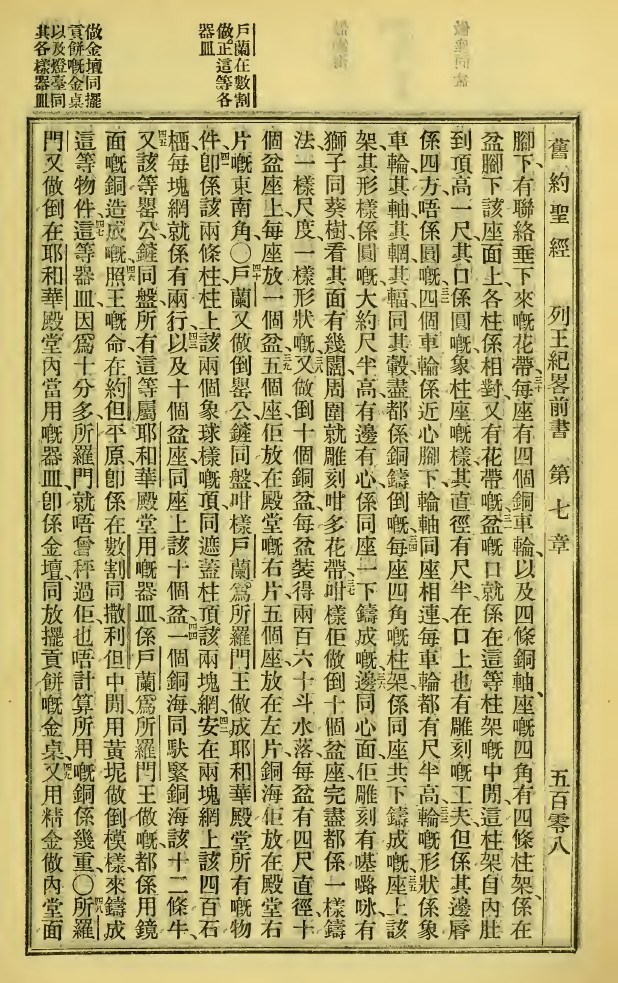 戶蘭在數割
做正這等各
器皿
做金壇同擺
貢餅嘅金桌
以及燈臺同
其各樣器皿
舊約聖經 列王紀畧前書 第七章 五百零八
腳下有聯絡垂下來嘅花帶每座有四個銅車輪以及四條銅軸座嘅四角有四條柱架係在
盆腳下該座面上各柱係相對又有花帶嘅盆嘅口就係在這等柱架嘅中閒這柱架自內肚
到頂高一尺其口係圓嘅象柱座嘅樣其直徑有尺半在口上也有雕刻嘅工夫但係其邊唇
係四方唔係圓嘅四個車輪係近心腳下輪軸同座相連每車輪都有尺半高輪嘅形狀係象
車輪其軸其輞其輻同其轂盡都係銅鑄倒嘅每座四角嘅柱架係同座共下鑄成嘅座上該
架其形樣係圓嘅大約尺半高有邊有心係同座一下鑄成嘅邊同心面佢雕刻有𠹌㗉㕲有
獅子同葵樹看其面有幾闊周圍就雕刻咁多花帶咁樣佢做倒十個盆座完盡都係一樣鑄
法一樣尺度一樣形狀嘅又做倒十個銅盆每盆裝得兩百六十斗水落每盆有四尺直徑十
個盆座上每座放一個盆五個座佢放在殿堂嘅右片五個座放在左片銅海佢放在殿堂右
片嘅東南角〇戶蘭又做倒罌公鏟同盤咁樣戶蘭爲所羅門王做成耶和華殿堂所有嘅物
件卽係該兩條柱柱上該兩個象球樣嘅項同遮蓋柱頂該兩塊網安在兩塊網上該四百石
榴每塊網就係有兩行以及十個盆座同座上該十個盆一個銅海同駄緊銅海該十二條牛
又該等罌公鏟同盤所有這等屬耶和華殿堂用嘅器皿係戶蘭爲所羅門王做嘅都係用鏡
面嘅銅造成嘅照王嘅命在約但平原卽係在數割同撒利但中閒用黃坭做倒模樣來鑄成
這等物件這等器皿因爲十分多所羅門就唔曾秤過佢也唔計算所用嘅銅係幾重〇所羅
門又做倒在耶和華殿堂內當用嘅器皿卽係金壇同放擺貢餅嘅金桌又用精金做內堂面